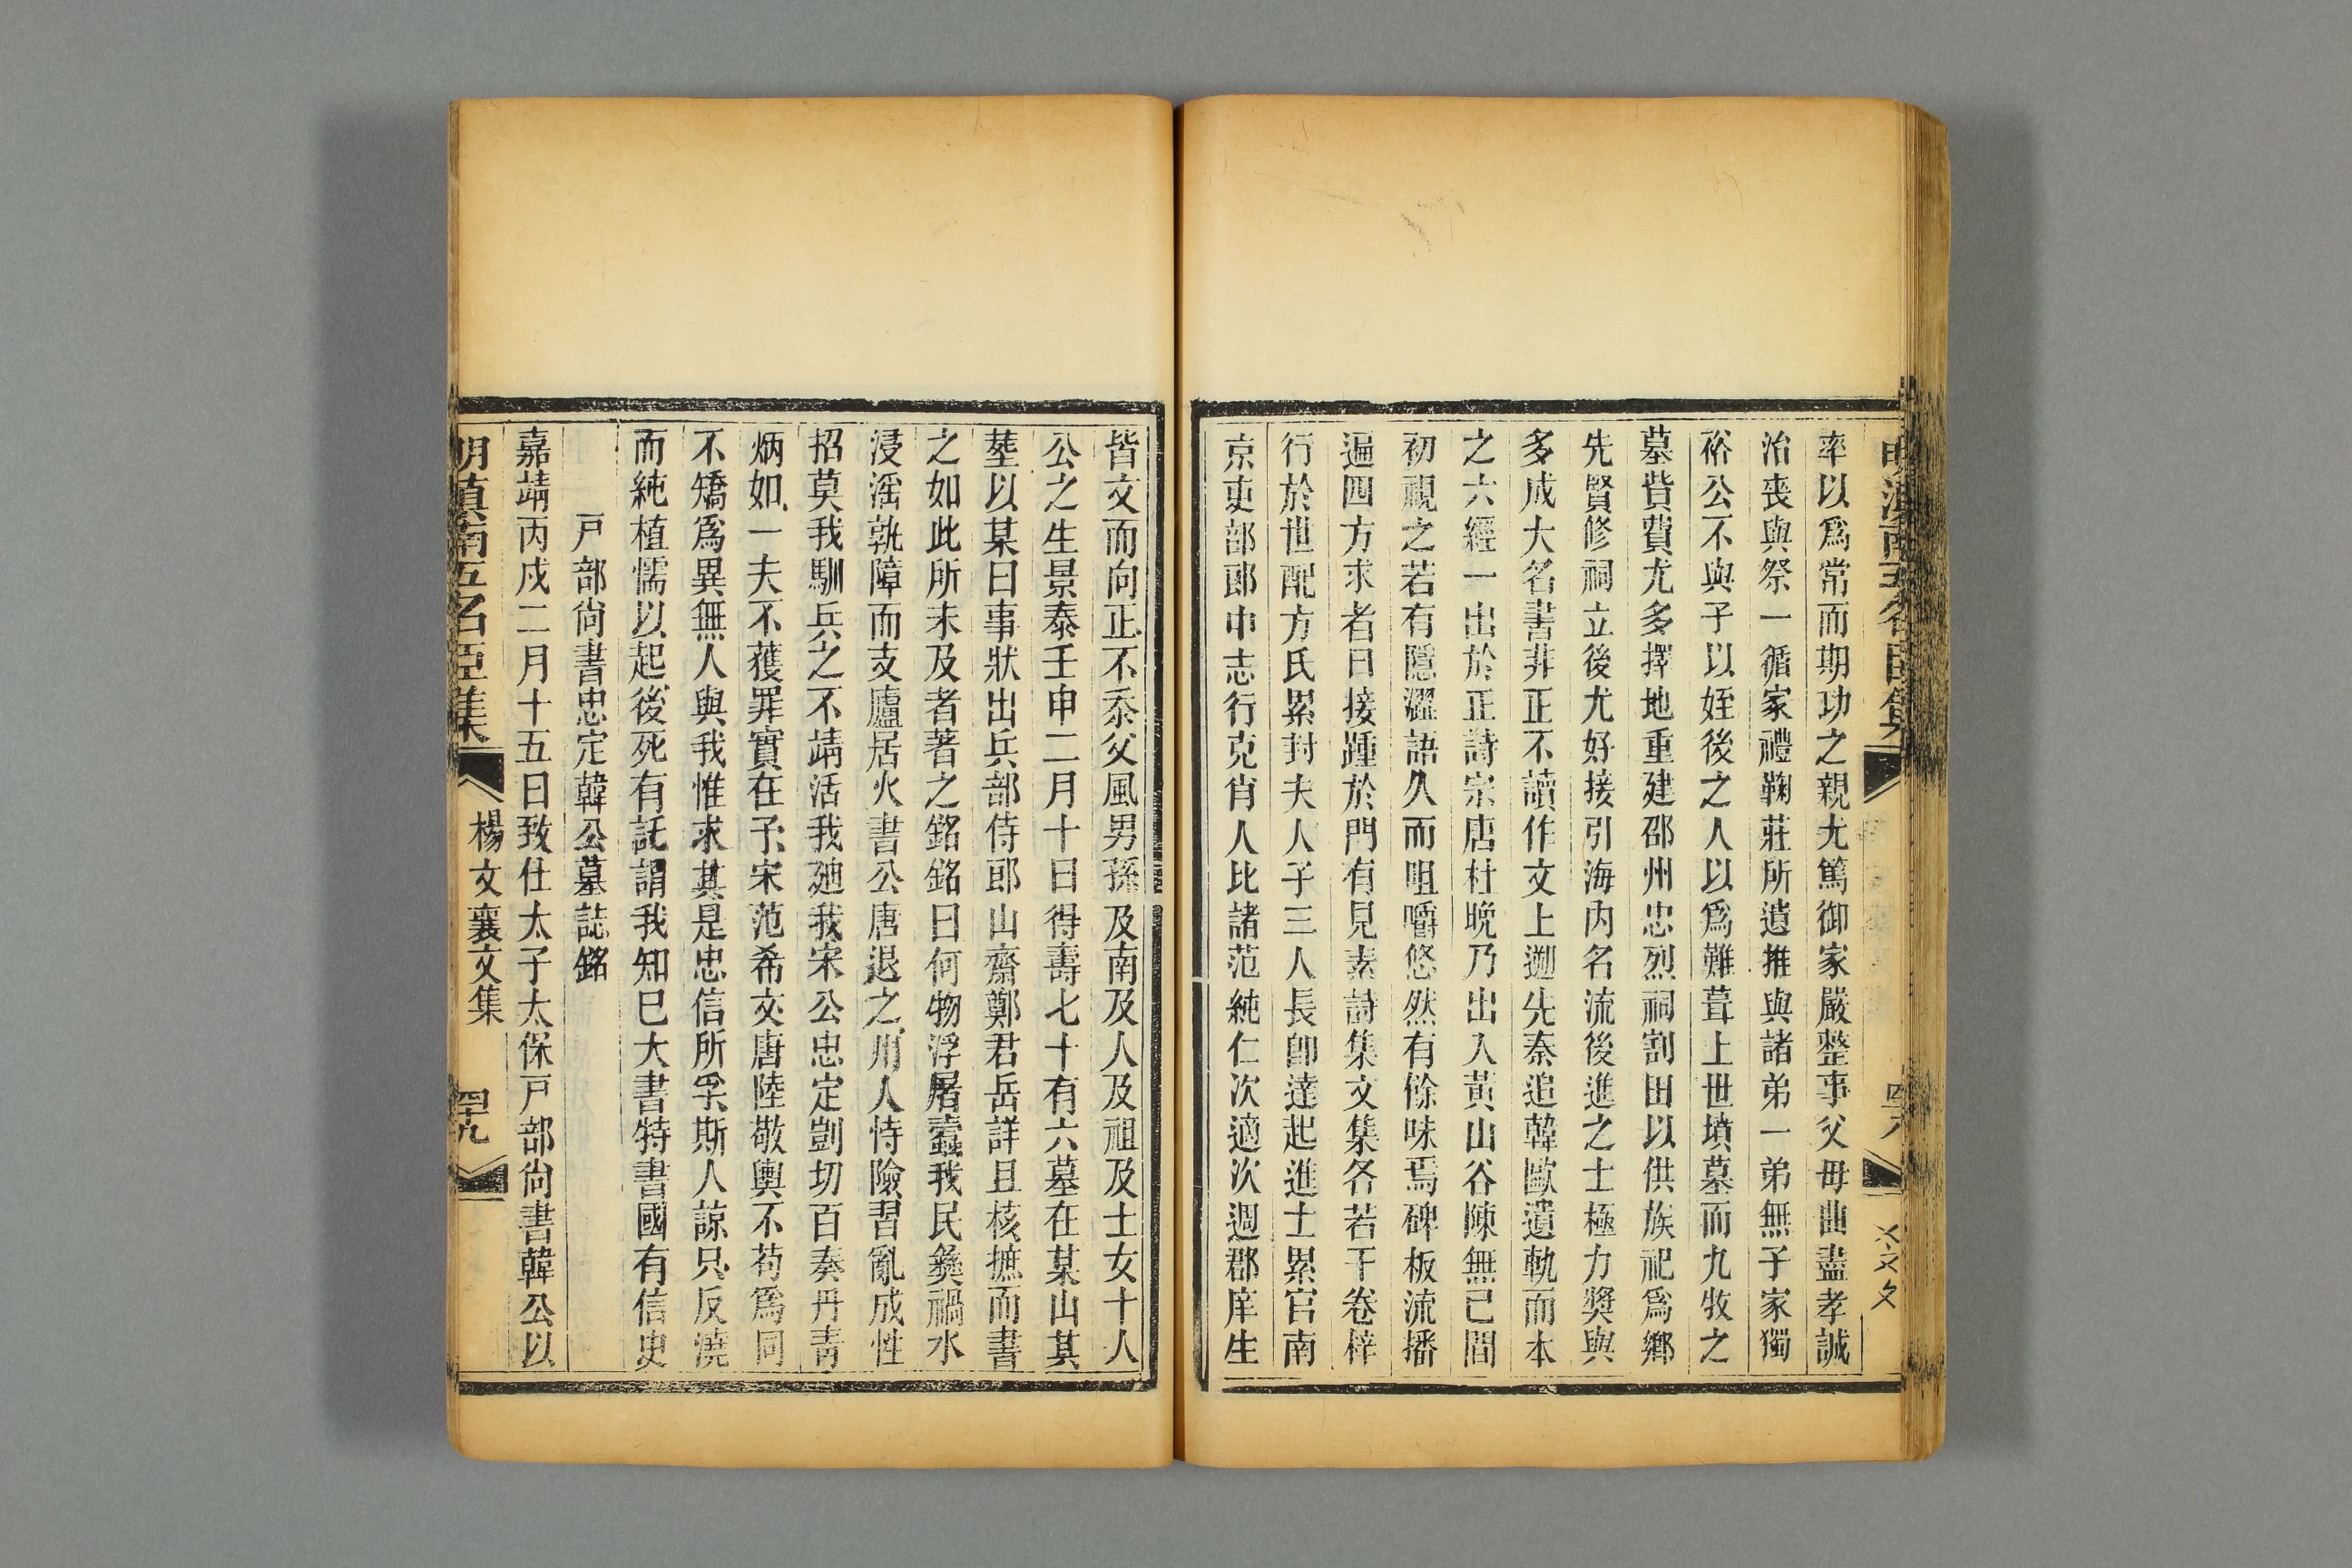 率以爲常而期功之親尤篤御家嚴整事父毋曲盡孝誠
治喪與祭一循家禮鞠莊所遺推與諸弟一弟無子家獨
裕公不與子以姪後之人以爲難葺上世墳墓而九牧之
墓貲費尤多擇地重建邵州忠烈祠割田以供族祀爲鄉
先賢修祠立後尤好接引海内名流後進之士極力奬與
多成大名書非正不讀作文上遡先秦追韓歐遺軌而本
之六經一出於正詩宗唐杜晩乃出入黃山谷陳無己間
初視之若有隱澀語久而咀嚼悠然有餘味焉碑板流播
遍四方求者日接踵於門有見素詩集文集各若干卷梓
行於世配方氏累封夫人子三人長卽達起進士累官南
京吏部郎中志行克肖人比諸范純仁次適次週郡庠生
皆文而向正不忝父風男孫及南及人及祖及士女十人
公之生景泰壬申二月十日得壽七十有六墓在某山其
塟以某日事狀出兵部侍郎山齋鄭君岳詳且核摭而書
之如此所未及者著之銘銘曰何物浮屠蠹我民彝禍水
浸滛孰障而支廬居火書公唐退之川人恃險習亂成性
招莫我馴兵之不靖活我廸我宋公忠定剴切百奏丹靑
炳如一夫不獲罪實在予宋范希文唐陸敬輿不苟爲同
不矯爲異無人與我惟求其是忠信所孚斯人諒只反澆
而純植懦以起後死有託謂我知巳大書特書國有信史
戸部尙書忠定韓公墓誌銘
嘉靖丙戍二月十五日致仕太子太保戸部尙書韓公以
明滇南五名臣集
楊文襄文集
四十九